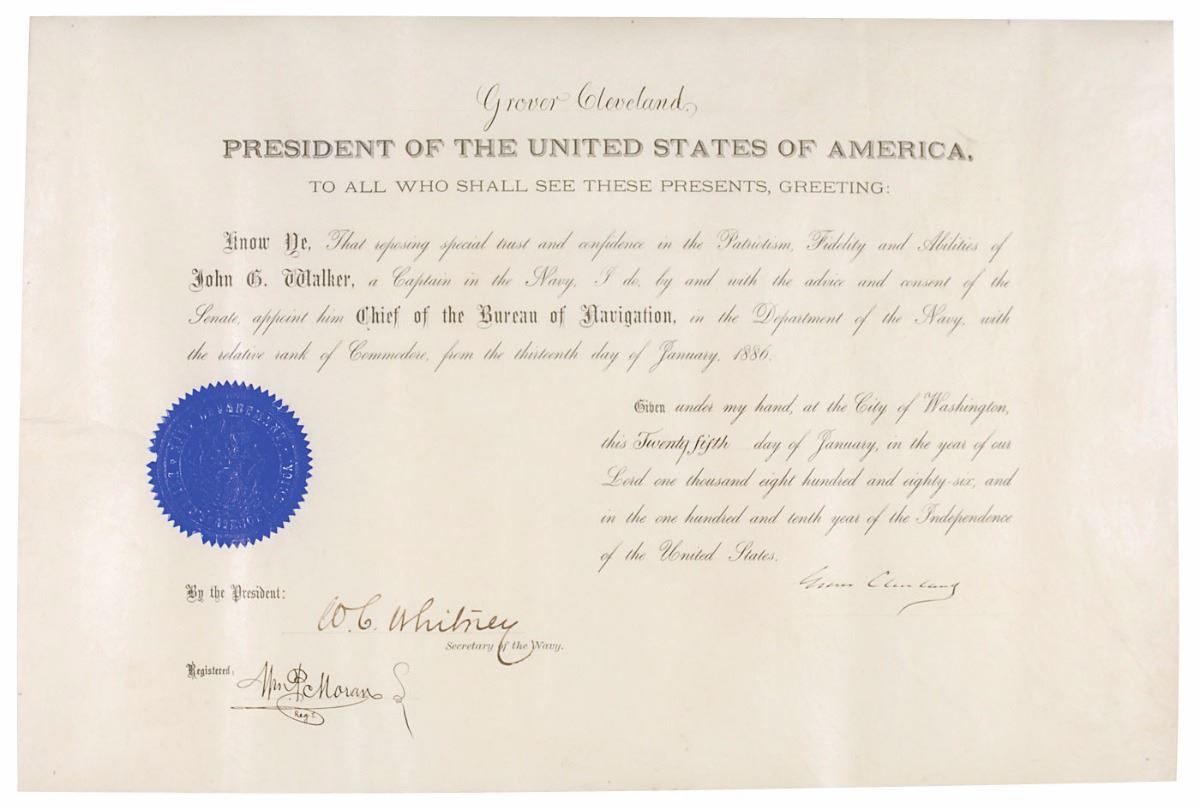 Grover Cleveland.
PRESIDENT OF THE UNITED STATES OF AMERICA,
TO ALL WHO SHALL SEE THESE PRESENTS, GREETING:
Know Ye, That reposing special trust and confidence in the Patriotism, Fidelity and Abilities of
John G. Walker, a Captain in the Navy, I do, by and with the advice and consent of the
Senate, appoint him Chief of the Bureau of Navigation, in the Department of the Navy, with
the relative rank of Commodore, from the thirteenth day of January, 1886.
Given under my hand, at the City of Washington,
this Twenty fifth day of January, in the year of our
Lord one thousand eight hundred and eighty-six, and
in the one hundred and tenth year of the Independence
of the United States.
Grover Cleveland
By the President:
W. C. Whitney
Secretary of the Navy.
Registered,
Moran
Reg